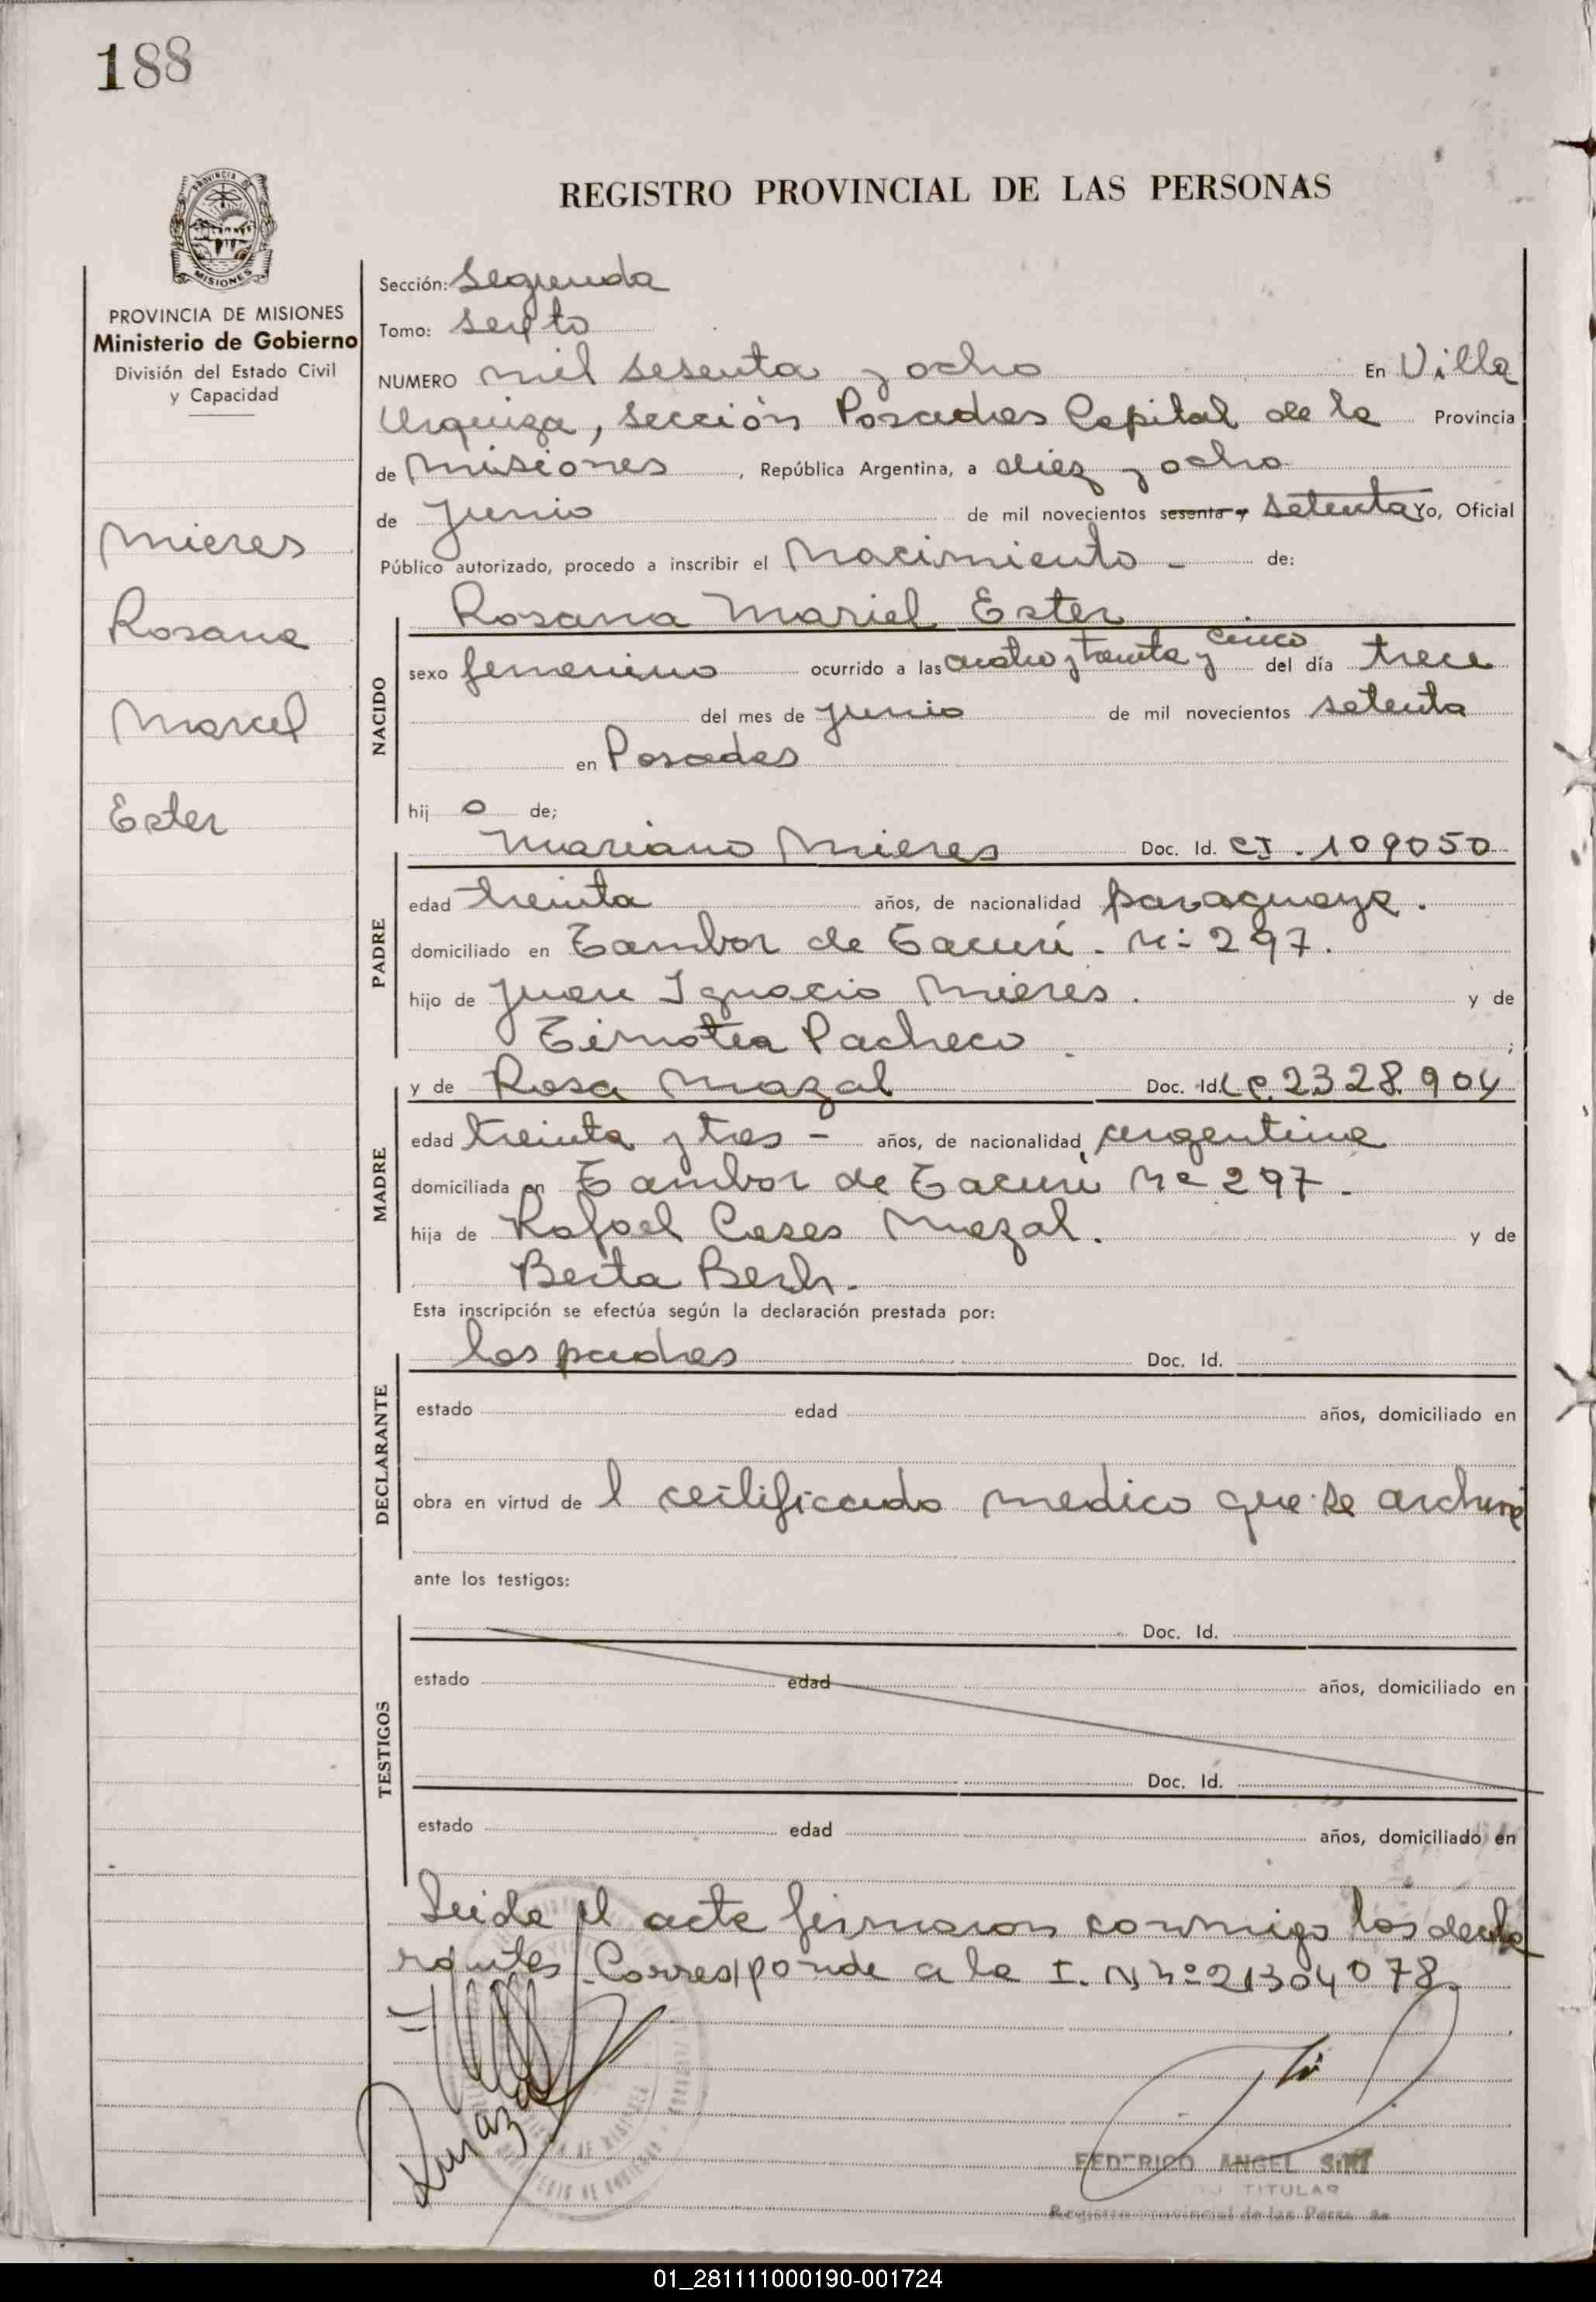 188
REGISTRO PROVINCIAL DE LAS PERSONAS
PROVINCIA DE MISIONES
Ministerio de Gobierno
División del Estado Civil
y Capacidad
Mieres
Rosana
Maricel
Ester
Sección: Segunda
Tomo: Sexto
NUMERO mil sesenta y ocho En Villa
Urquiza, sección Posadas Capital de la Provincia
de Misiones, República Argentina, a diez y ocho
de Junio de mil novecientos sesenta y setenta Yo, Oficial
Público autorizado, procedo a inscribir el Nacimiento - de:
Rosana Mariel Ester
NACIDO
sexo femenino ocurrido a las cuatro y treinta y cinco del día trece
del mes de Junio de mil novecientos setenta
en Posadas
hij a de;
PADRE
Mariano Mieres Doc. Id. CI. 109050
edad treinta años, de nacionalidad paraguaya.
domiciliado en Tambor de Tacuri - Nº 297.
hijo de Juan Ignacio Mieres. y de
Timotea Pacheco.;
MADRE
y de Rosa Mazal Doc. Id. LC. 2328.904
edad treinta y tres - años, de nacionalidad argentina
domiciliada en Tambor de Tacuri Nº 297.
hija de Rafael Cases Mazal. y de
Berta
Esta inscripción se efectúa según la declaración prestada por:
DECLARANTE
los padres Doc. Id.
estado edad años, domiciliado en
obra en virtud de l certificado medico que se archiva
ante los testigos:
TESTIGOS
Doc. Id.
estado edad años, domiciliado en
Doc. Id.
estado edad años, domiciliado en
Leida el acta firmaron conmigo los decla
rantes. Corresponde a la I. N nº 21304078
FEDERICO ANGEL
TITULAR
Registro Provincial de las Pers
01_281111000190-001724